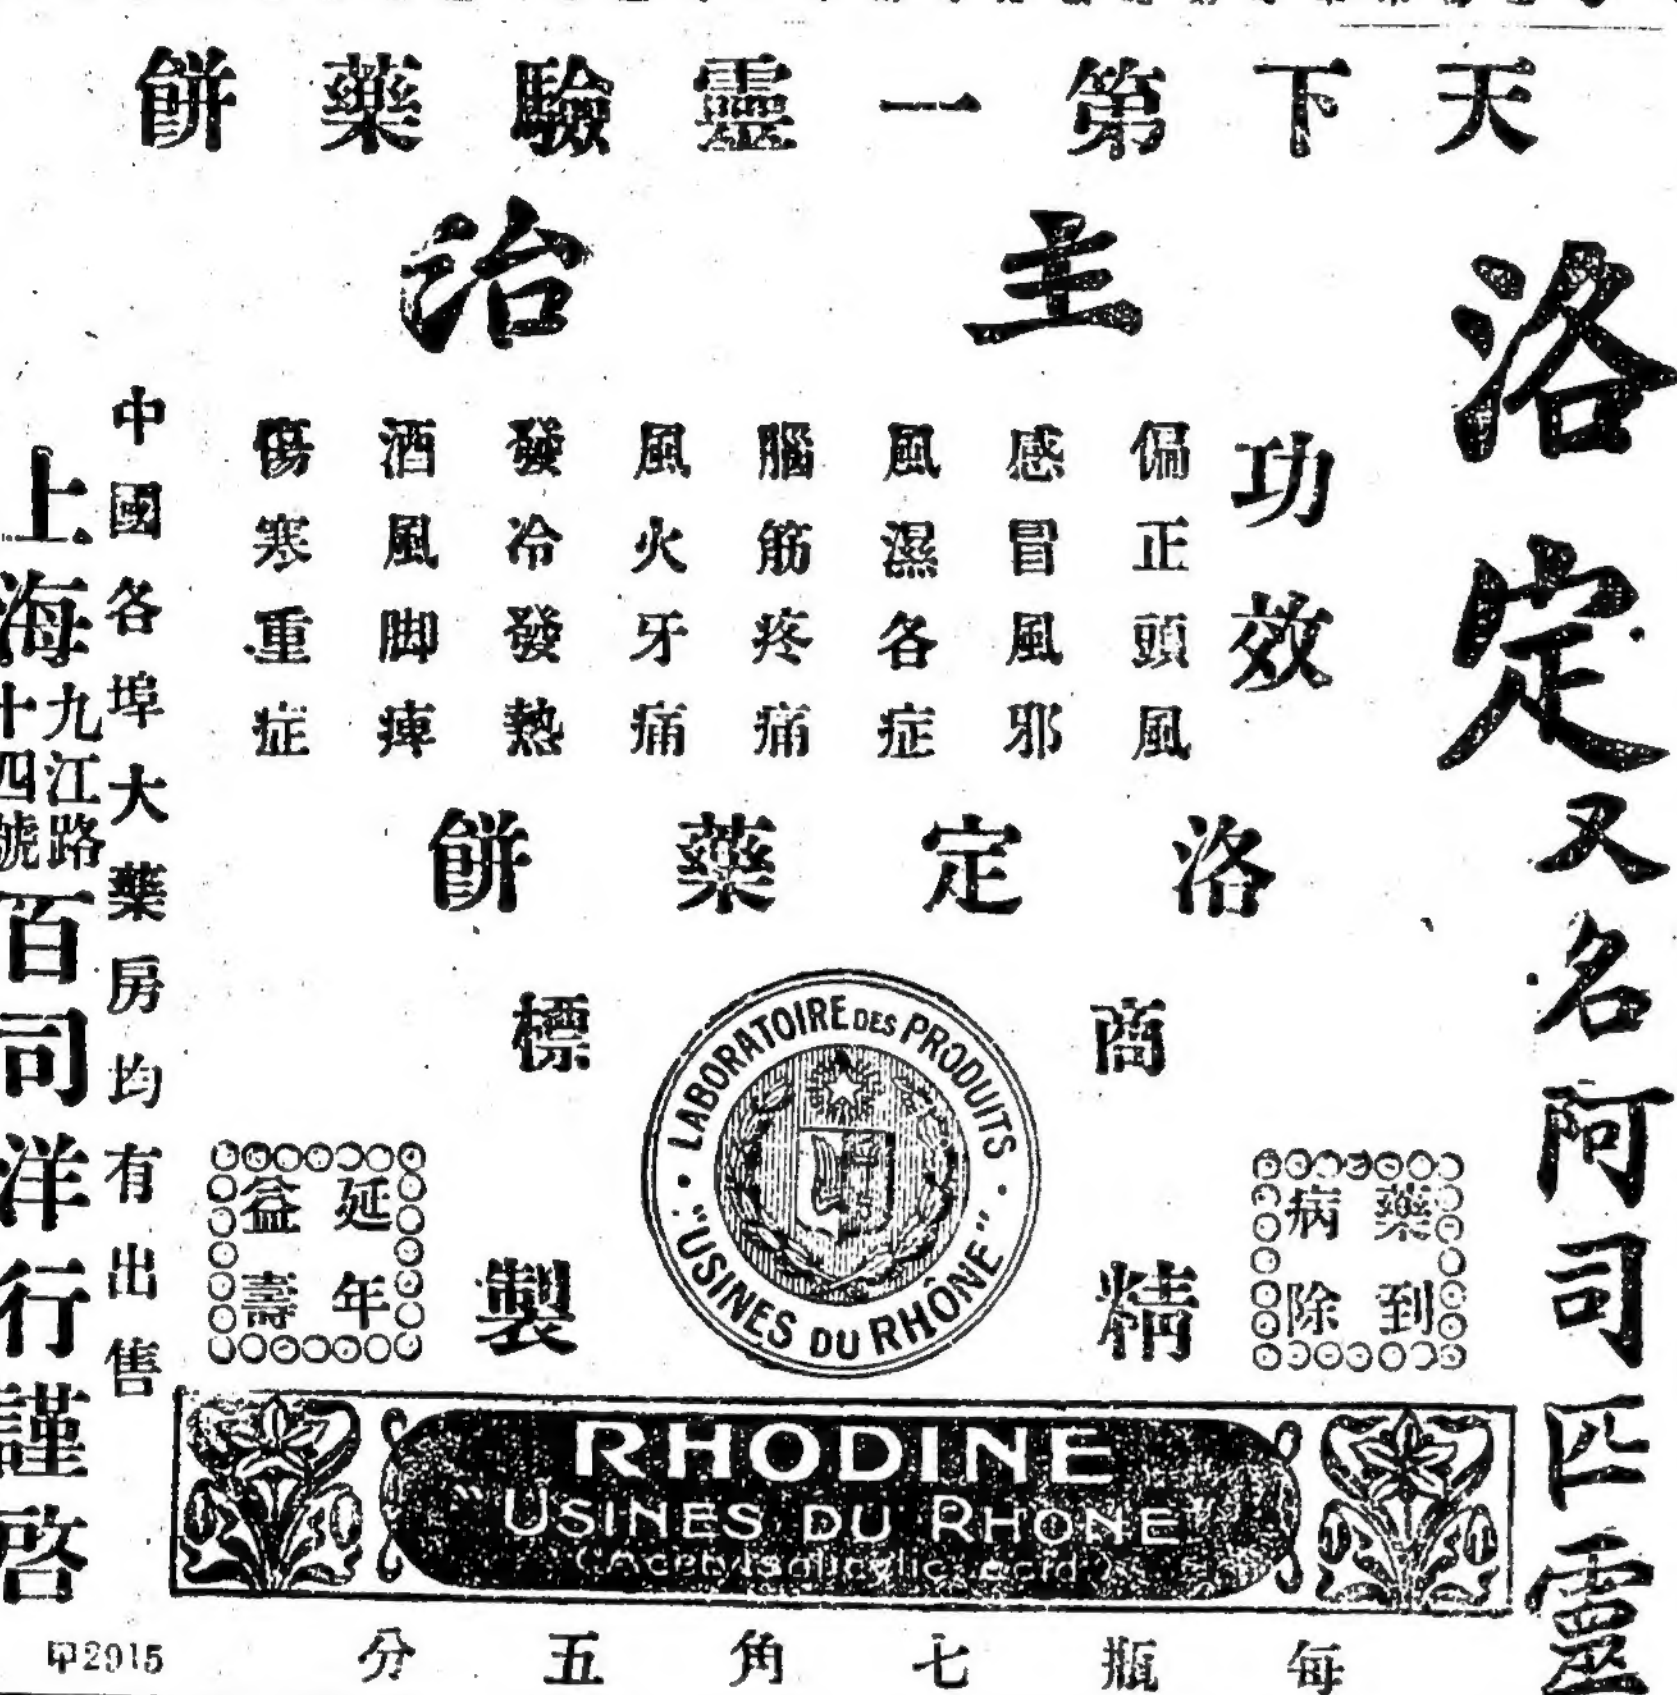 天下第一靈驗藥餅
洛定又名阿司匹靈
主治
功效
偏正頭風
感冒風邪
風濕各症
腦筋疼痛
風火牙痛
發冷發熱
酒風脚痺
傷寒重症
洛定藥餅
商標
LABORATOIRE DES PRODUITS
"USINES DU RHÔNE"
精製
藥到病除
延年益壽
RHODINE
"USINES DU RHONE"
(Acetylsalicylic acid)
每瓶七角五分
中國各埠大藥房均有出售
上海九江路十四號百司洋行謹啓
甲2915